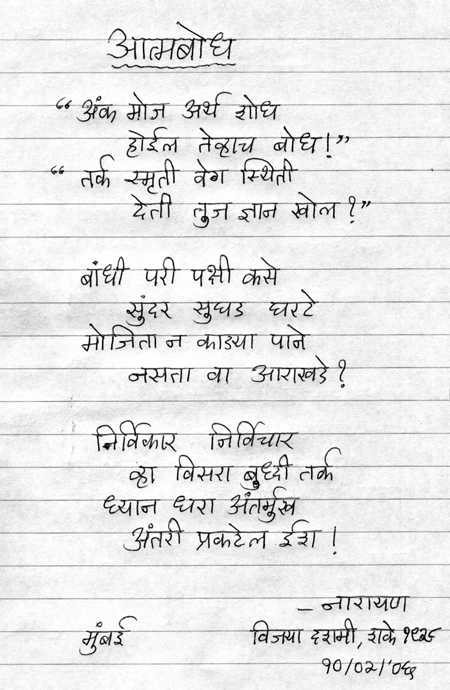 आत्मबोध
“ अंक मोज अर्थ शोध
होईल तेव्हाच बोध!”
“ तर्क स्मृती वेग स्थिती
देती तुज ज्ञान खोल?”
बांधी परी पक्षी कसे
सुंदर सुघड घरटे
मोजिता न काड्या पाने
नसता वा आराखडे?
निर्विकार निर्विचार
व्हा विसरा बुध्दी तर्क
ध्यान धरा अंतर्मुख
अंतरी प्रकटेल ईश!
– नारायण
मुंबई विजया दशमी, शके १९२८
१०/०२/'०६